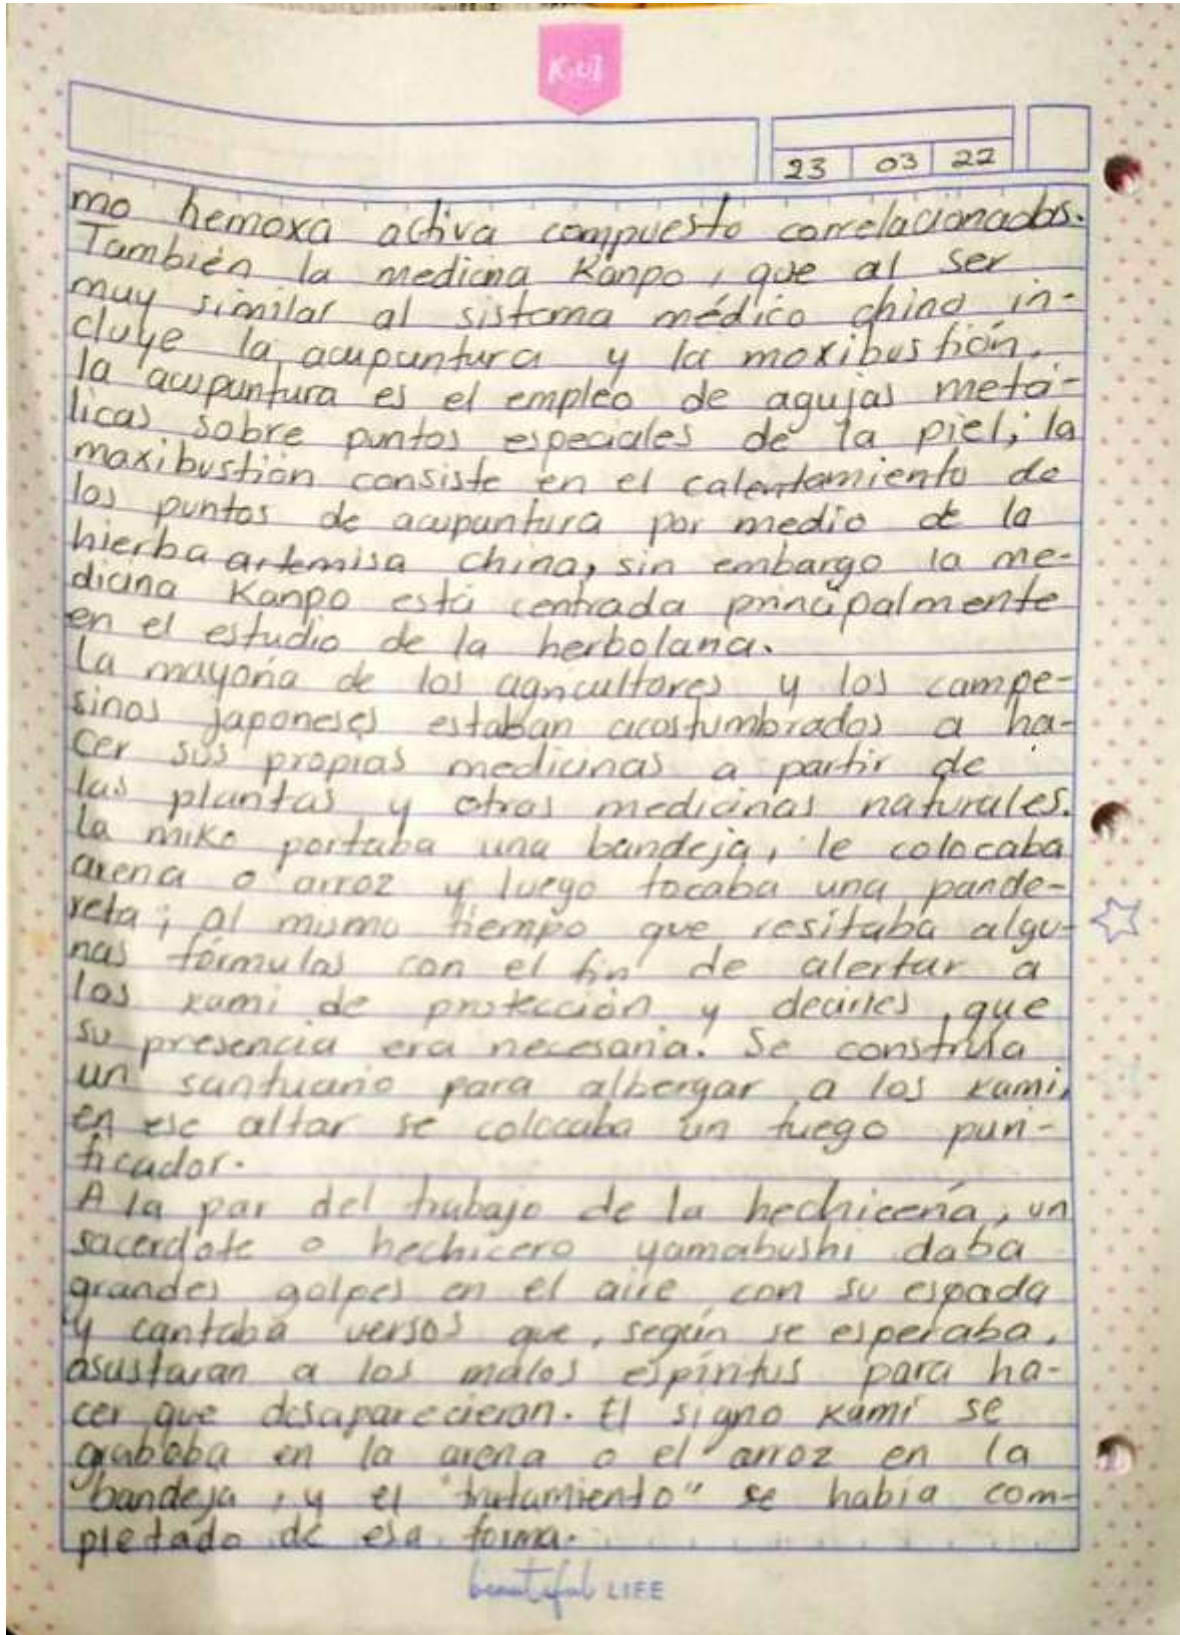 KIUT
23 03 22
mo hemoxa activa compuesto correlacionados.
También la medicina Kanpo, que al ser
muy similar al sistema médico chino in-
cluye la acupuntura y la moxibustión,
la acupuntura es el empleo de agujas metá-
licas sobre puntos especiales de la piel; la
moxibustión consiste en el calentamiento de
los puntos de acupuntura por medio de la
hierba artemisa china, sin embargo la me-
dicina Kanpo está centrada principalmente
en el estudio de la herbolaria.
La mayoría de los agricultores y los campe-
sinos japoneses estaban acostumbrados a ha-
cer sus propias medicinas a partir de
las plantas y otras medicinas naturales.
La miko portaba una bandeja, le colocaba
arena o arroz y luego tocaba una pande-
reta; al mismo tiempo que resitaba algu-
nas fórmulas con el fin de alertar a
los kami de protección y decirles, que
su presencia era necesaria. Se construía
un santuario para albergar a los kami,
en ese altar se colocaba un fuego puri-
ficador.
A la par del trabajo de la hechicería, un
sacerdote o hechicero yamabushi daba
grandes golpes en el aire con su espada
y cantaba versos que, según se esperaba,
asustaran a los malos espíritus para ha-
cer que desaparecieran. El signo kami se
grababa en la arena o el arroz en la
bandeja, y el "tratamiento" se había com-
pletado de esa forma.
beautiful LIFE